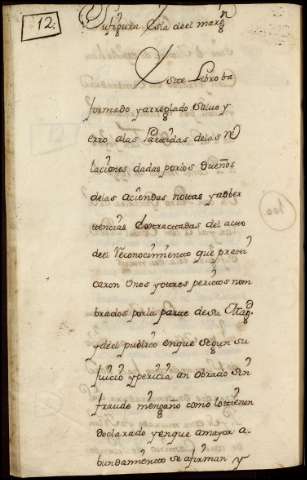 12.
Este Libro ba
formado y arreglado salvo y
erro, a las Partidas de las R
laciones dadas por los Dueños
de las aciendas notas y adber
tencias extractadas del acto
de el Reconocimiento que practi
caron Unos y otros peritos nom
brados por la parte de su Mag.d
y del publico en que segun su
Juicio y pericia an obrado sin
fraude ni engaño como lo tienen
declarado y en que a mayor a-
bundamiento se afirman y